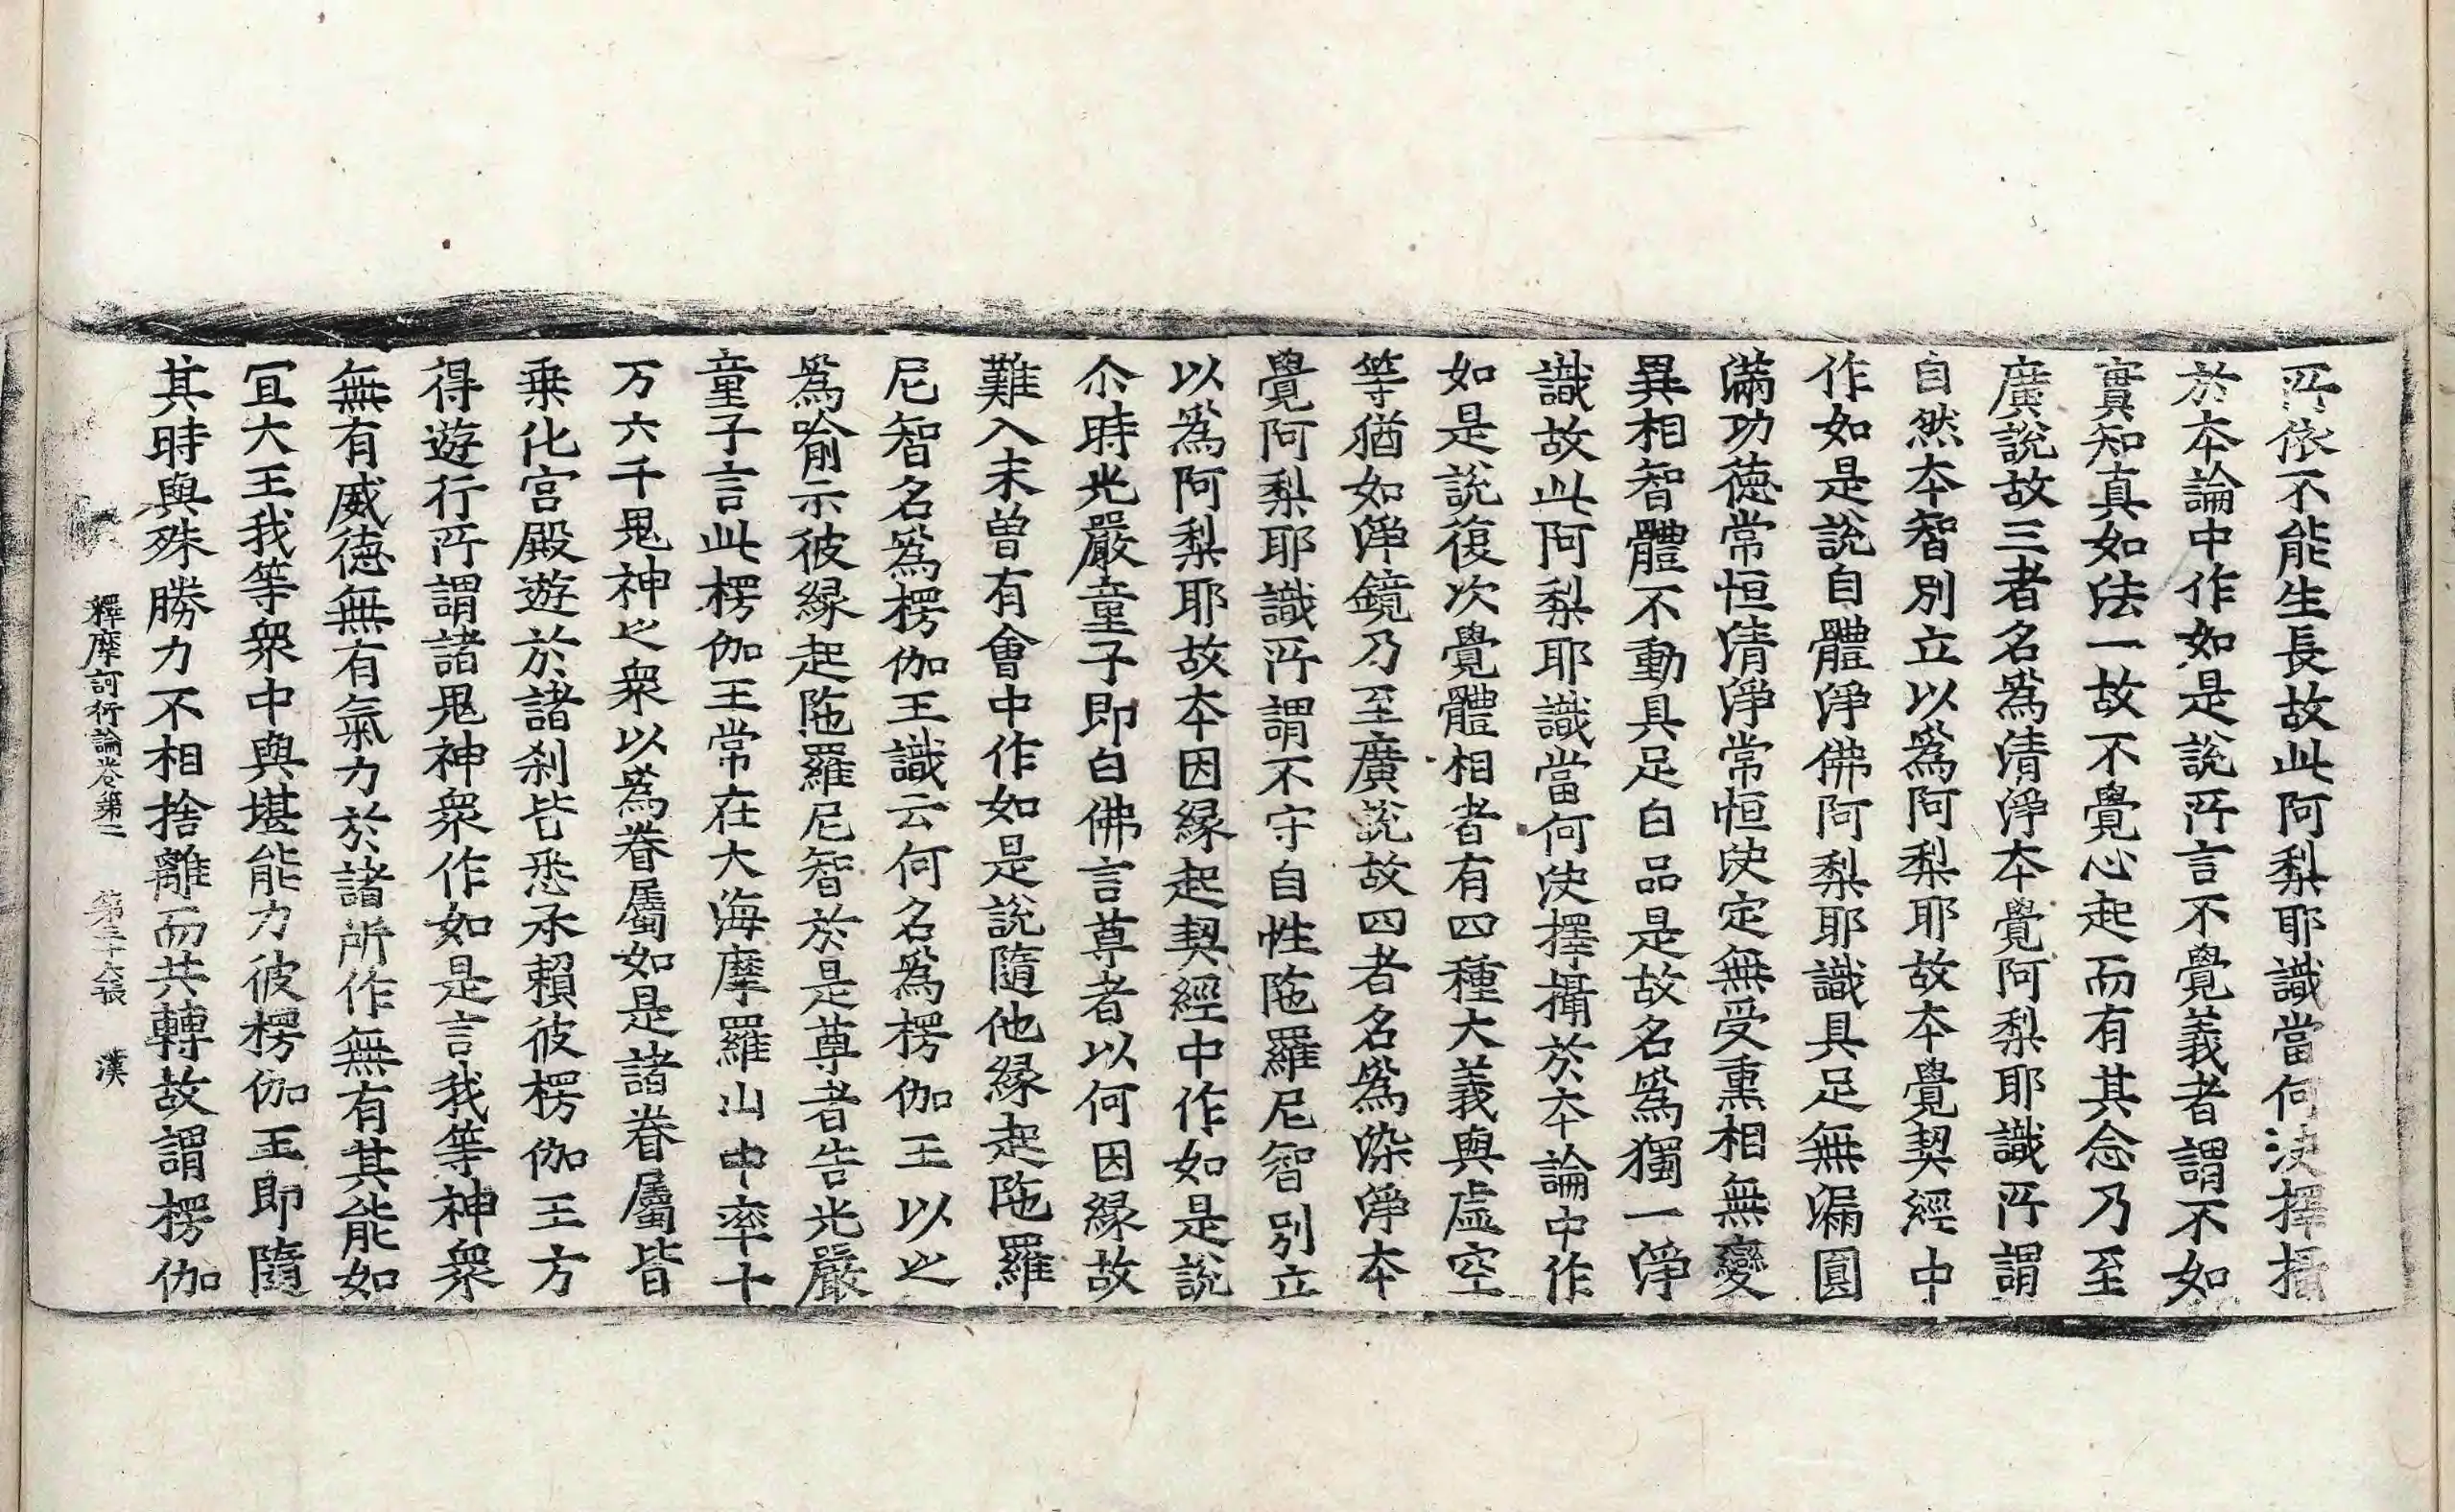 所依不能生長故此阿梨耶識當何決擇攝
於本論中作如是說所言不覺義者謂不如
實知真如法一故不覺心起而有其念乃至
廣說故三者名爲清淨本覺阿梨耶識所謂
自然本智別立以爲阿梨耶故本覺契經中
作如是說自體淨佛阿梨耶識具足無漏圓
滿功德常恒清淨常恒決定無受熏相無變
異相智體不動具足白品是故名爲獨一淨
識故此阿梨耶識當何決擇攝於本論中作
如是說復次覺體相者有四種大義與虛空
等猶如淨鏡乃至廣說故四者名爲染淨本
覺阿梨耶識所謂不守自性陁羅尼智別立
以爲阿梨耶故本因緣起契經中作如是說
尒時光嚴童子即白佛言尊者以何因緣故
難入未曾有會中作如是說隨他緣起陁羅
尼智名爲楞伽王識云何名爲楞伽王以之
爲喻示彼緣起陁羅尼智於是尊者告光嚴
童子言此楞伽王常在大海摩羅山中率十
万六千鬼神之衆以爲眷屬如是諸眷屬皆
乗化宮殿遊於諸刹皆悉承賴彼楞伽王方
得遊行所謂諸鬼神衆作如是言我等神衆
無有威德無有氣力於諸所作無有其能如
冝大王我等衆中與堪能力彼楞伽王即隨
其時與殊勝力不相捨離而共轉故謂楞伽
釋摩訶衍論卷第二 第二十六張 漢